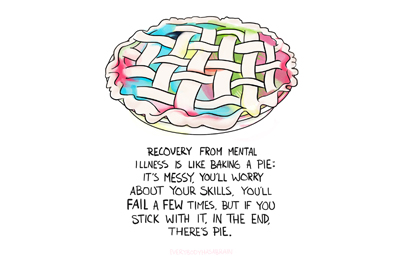 RECOVERY FROM MENTAL
ILLNESS IS LIKE BAKING A PIE:
IT'S MESSY, YOU'LL WORRY
ABOUT YOUR SKILLS, YOU'LL
FAIL A FEW TIMES, BUT IF YOU
STICK WITH IT, IN THE END,
THERE'S PIE.